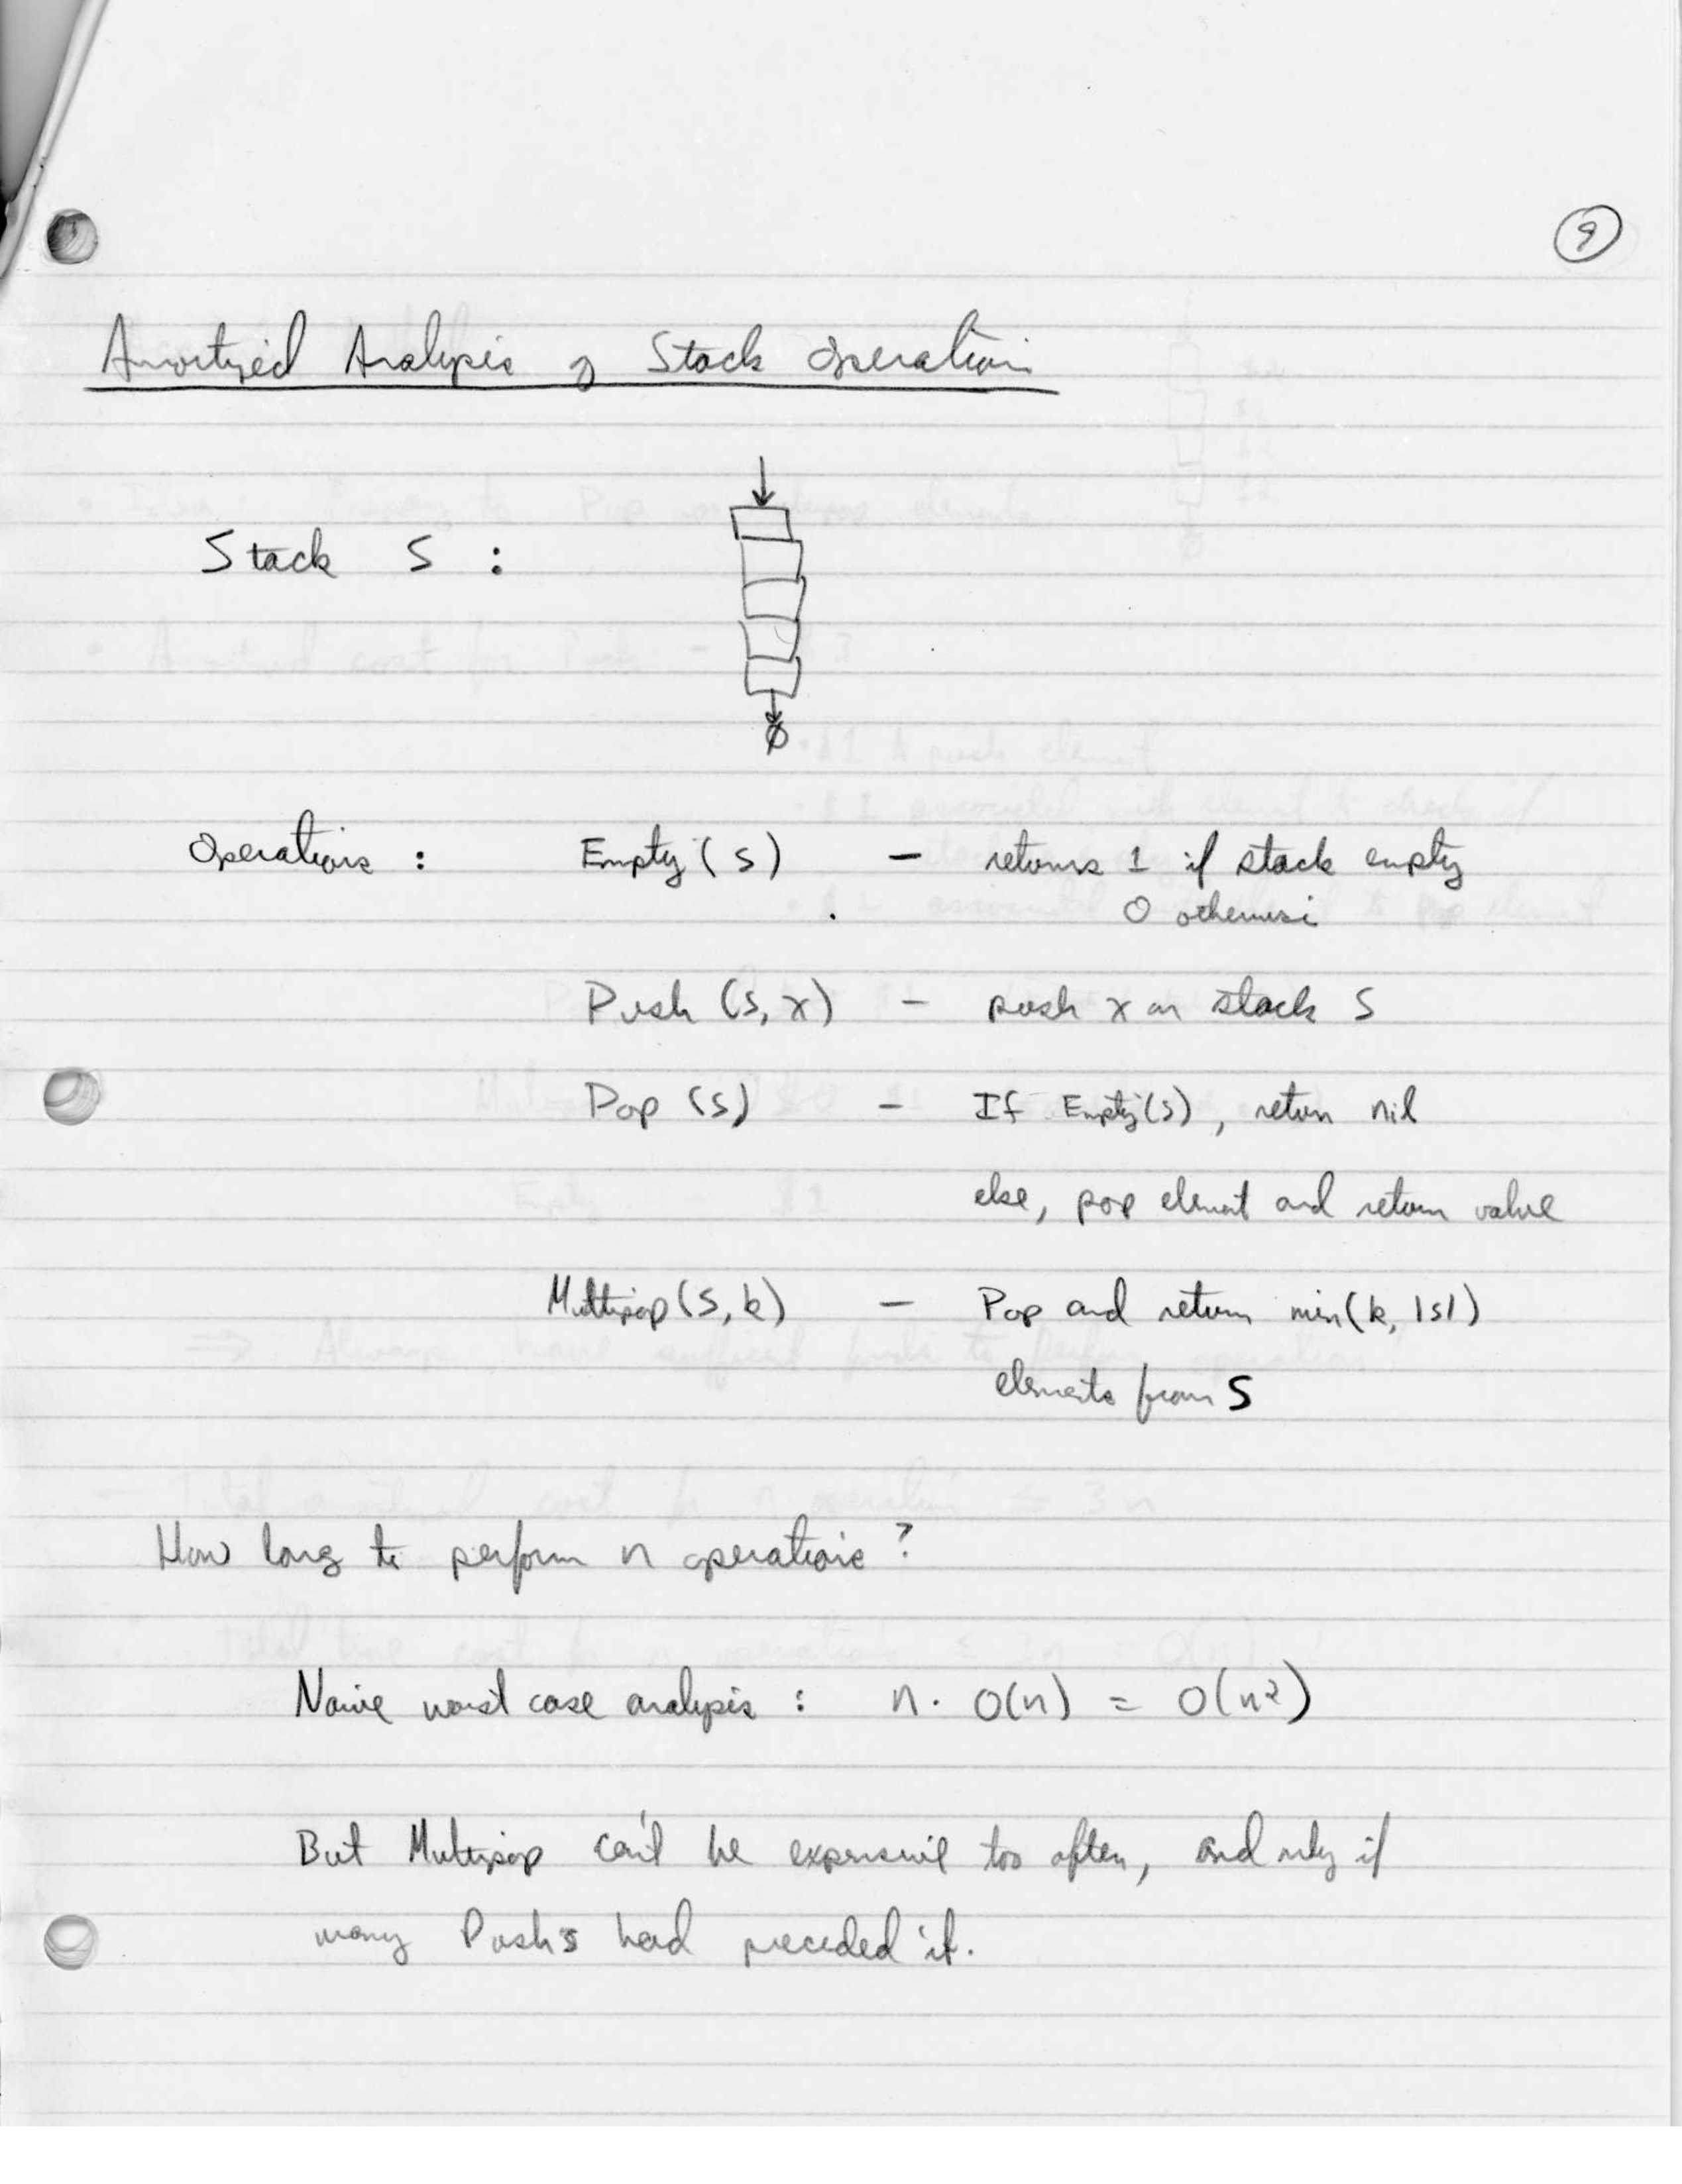 9
Amortized Analysis of Stack Operations
Stack S :
Operations : Empty(S) - returns 1 if stack empty
0 otherwise
Push (S, x) - push x on stack S
Pop (S) - If Empty(S), return nil
else, pop element and return value
Multipop(S, k) - Pop and return min(k, |S|)
elements from S
How long to perform n operations?
Naive worst case analysis : n · O(n) = O(n²)
But Multipop can't be expensive too often, and only if
many Push's had preceded it.